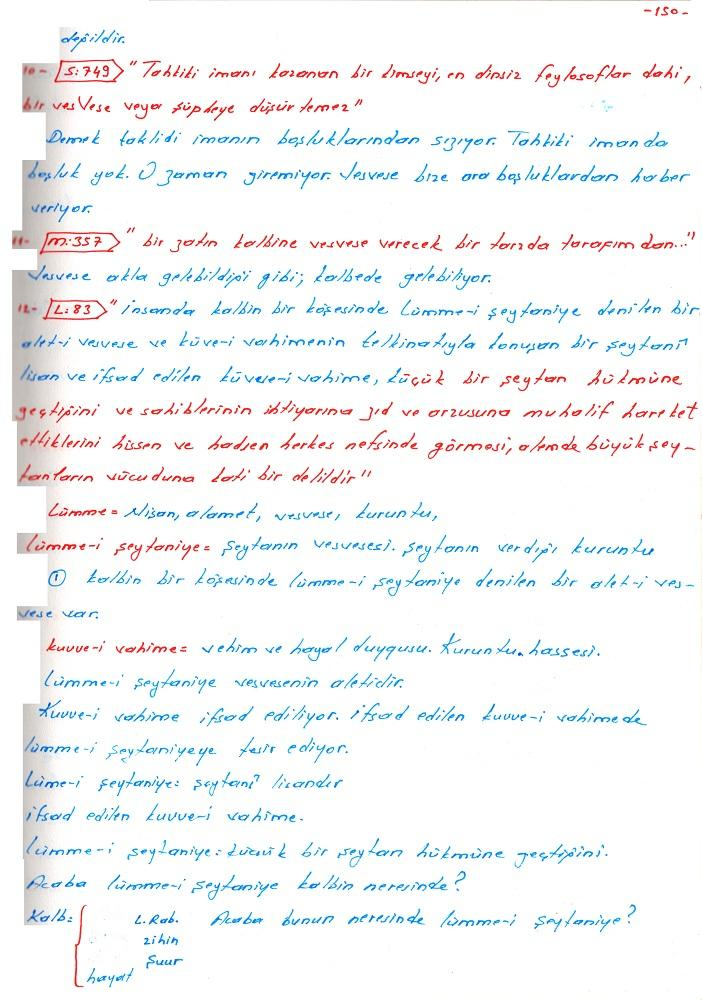 -150-
değildir.
10- S:749 "Tahkiki imanı kazanan bir kimseyi, en dinsiz feylosoflar dahi,
bir vesvese veya şüpheye düşürtemez"
Demek taklidi imanın boşluklarından sızıyor. Tahkiki imanda
boşluk yok. O zaman giremiyor. Vesvese bize ara boşluklardan haber
veriyor.
11- M:357 "bir zatın kalbine vesvese verecek bir tarzda tarafımdan..."
Vesvese akla gelebildiği gibi; kalbede gelebiliyor.
12- L:83 "İnsanda kalbin bir köşesinde Lümme-i şeytaniye denilen bir
alet-i vesvese ve küve-i vahimenin telkinatıyla konuşan bir şeytanî
lisan ve ifsad edilen küvve-i vahime, küçük bir şeytan hükmüne
geçtiğini ve sahiblerinin ihtiyarına zıd ve arzusuna muhalif hareket
ettiklerini hissen ve hadsen herkes nefsinde görmesi, alemde büyük şey-
tanların vücuduna kati bir delildir"
Lümme= Nişan, alamet, vesvese, kuruntu,
lümme-i şeytaniye= şeytanın vesvesesi. şeytanın verdiği kuruntu
① kalbin bir köşesinde lümme-i şeytaniye denilen bir alet-i ves-
vese var.
kuvve-i vahime= vehim ve hayal duygusu. Kuruntu. hassesi.
Lümme-i şeytaniye vesvesenin aletidir.
Kuvve-i vahime ifsad ediliyor. ifsad edilen kuvve-i vahimede
lümme-i şeytaniyeye tesir ediyor.
Lüme-i şeytaniye: şeytanî lisandır
ifsad edilen kuvve-i vahime.
Lümme-i şeytaniye: küçük bir şeytan hükmüne geçtiğini.
Acaba lümme-i şeytaniye kalbin neresinde?
Kalb: { L. Rab. Acaba bunun neresinde lümme-i şeytaniye?
zihin
Şuur
hayat